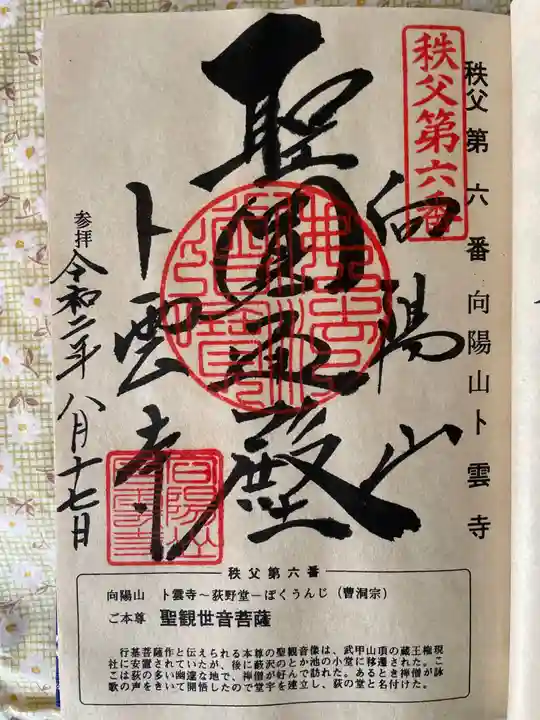 秩父第六番
秩父第六番 向陽山卜雲寺
向陽山
聖
殿
卜雲寺
参拝
令和二年八月十七日
秩父第六番
向陽山 卜雲寺～荻野堂－ぼくうんじ（曹洞宗）
ご本尊 聖観世音菩薩
行基菩薩作と伝えられる本尊の聖観音像は、武甲山頂の蔵王権現
社に安置されていたが、後に藪沢のとか池の小堂に移遷された。こ
こは荻の多い幽邃な地で、禅僧が好んで訪れた。あるとき禅僧が詠
歌の声をきいて開悟したので堂宇を建立し、荻の堂と名付けた。